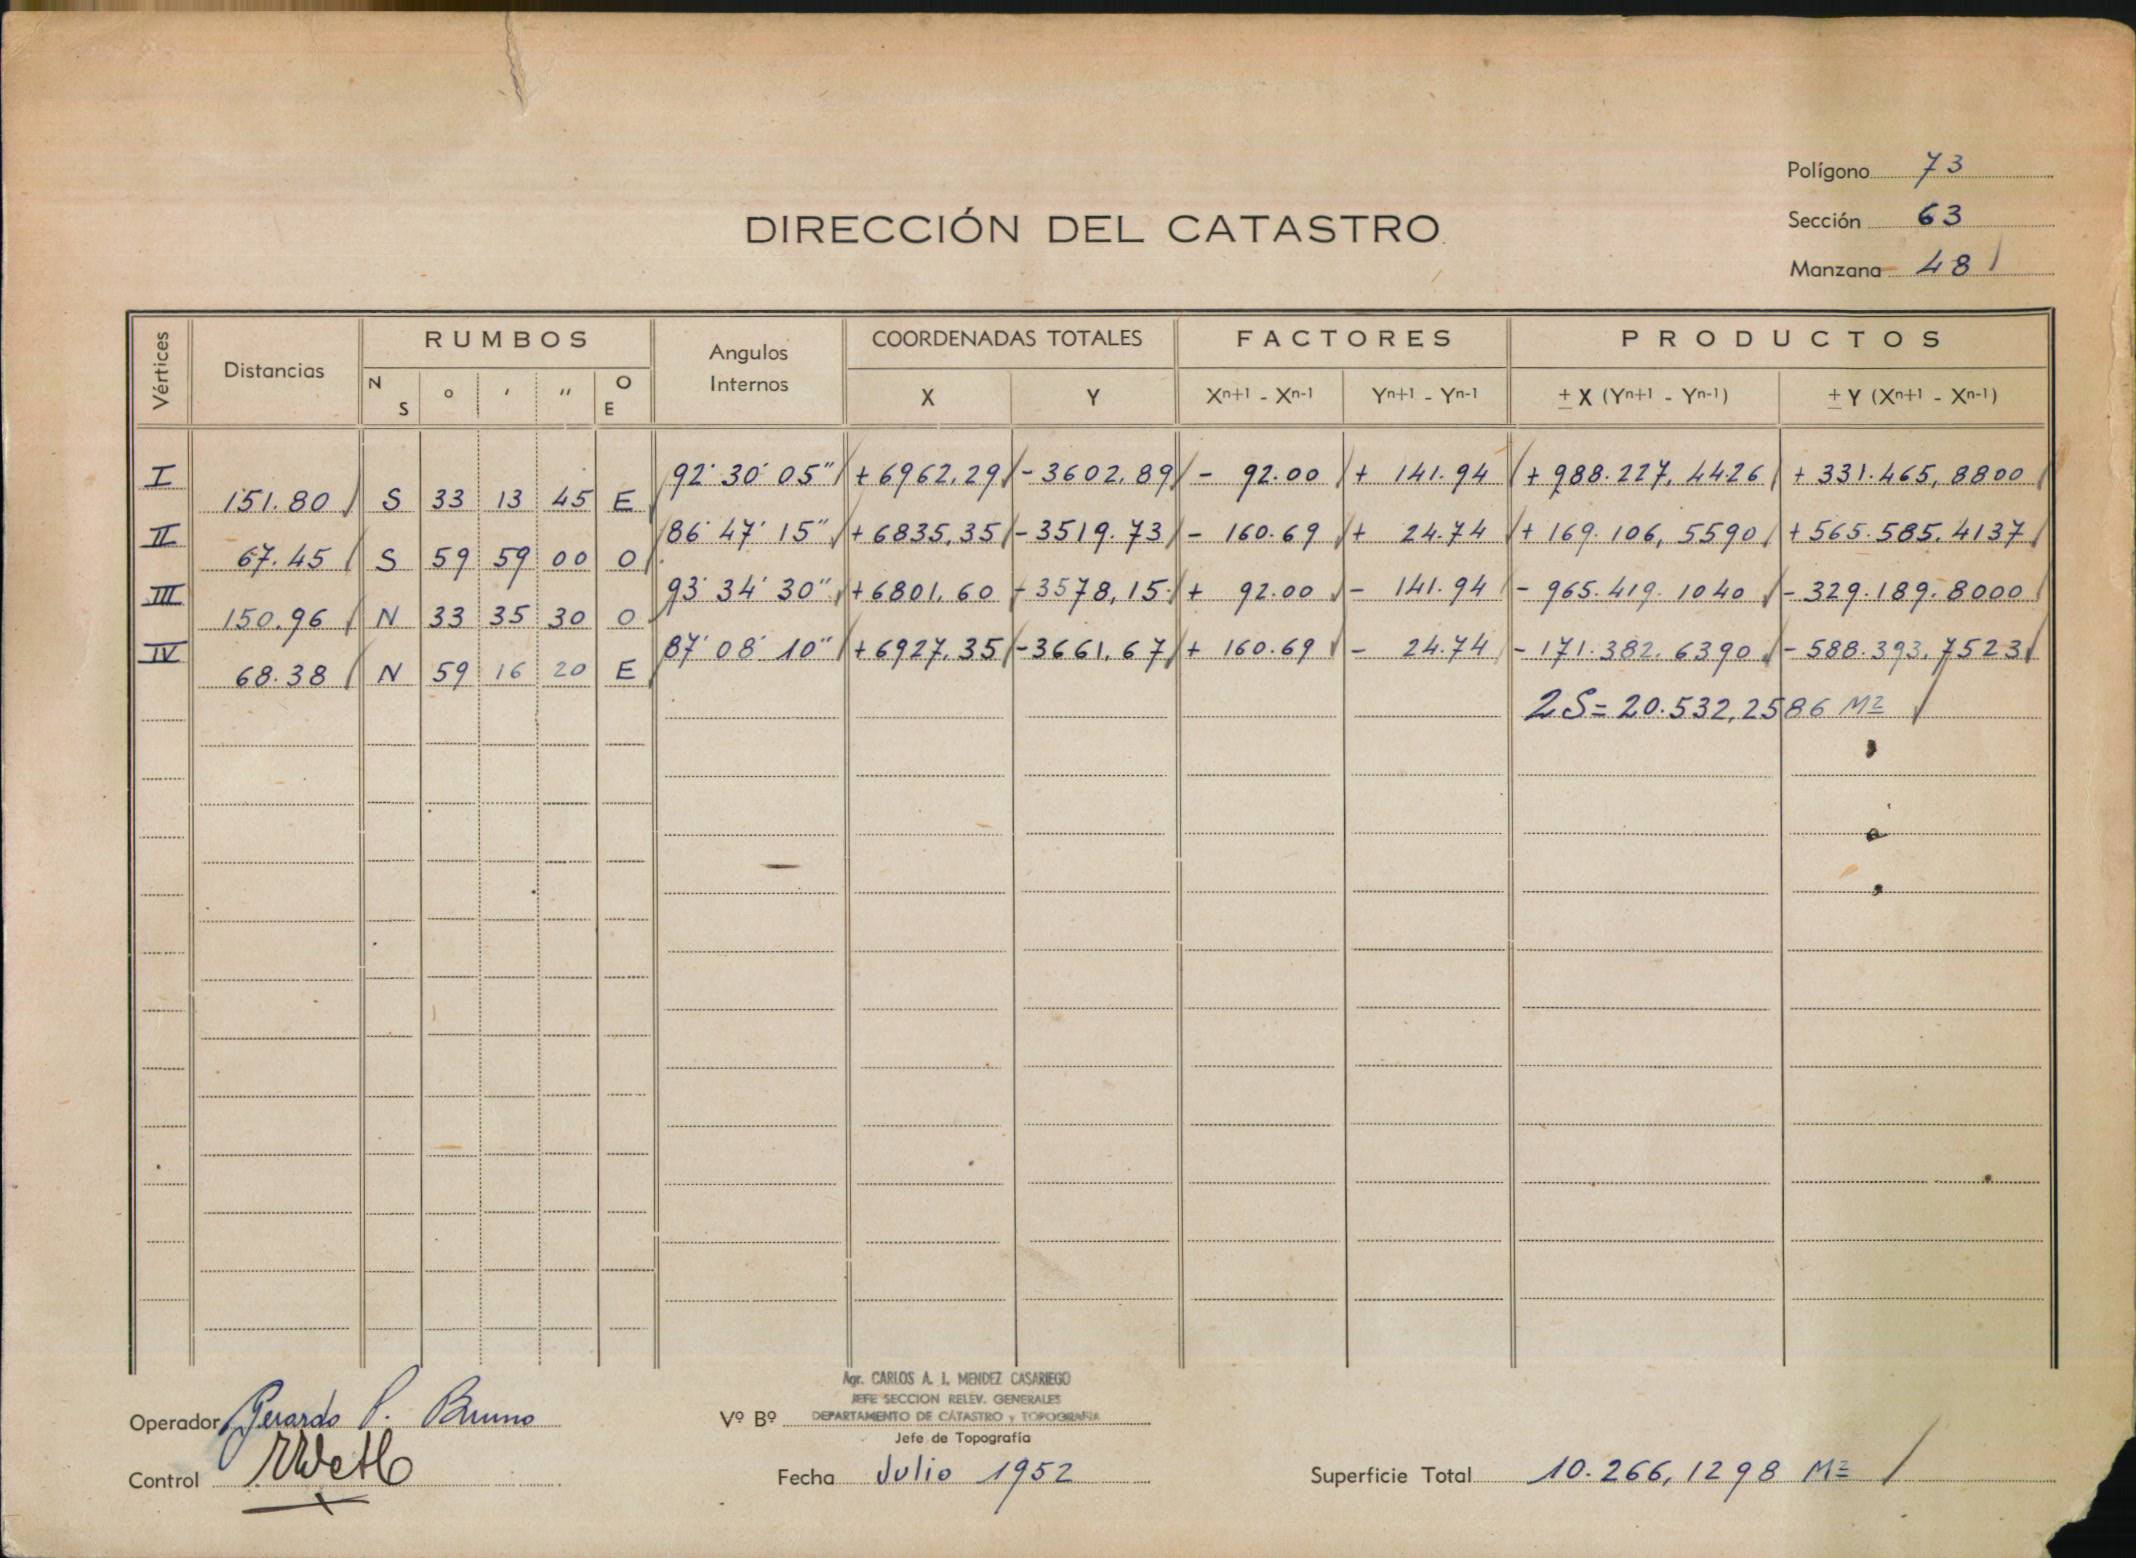 Polígono 73
Sección 63
Manzana 48
DIRECCIÓN DEL CATASTRO
Vértices Distancias RUMBOS Angulos Internos COORDENADAS TOTALES FACTORES PRODUCTOS
N S ° ' '' O E X Y Xn+1 - Xn-1 Yn+1 - Yn-1 ± X (Yn+1 - Yn-1) ± Y (Xn+1 - Xn-1)
I 92° 30' 05" +6962,29 -3602,89 - 92.00 + 141.94 +988.227,4426 +331.465,8800
151.80 S 33 13 45 E
II 86° 47' 15" +6835,35 -3519.73 - 160.69 + 24.74 +169.106,5590 +565.585.4137
67.45 S 59 59 00 O
III 93° 34' 30" +6801,60 -3578,15 + 92.00 - 141.94 -965.419.1040 -329.189.8000
150.96 N 33 35 30 O
IV 87° 08' 10" +6927,35 -3661,67 + 160.69 - 24.74 -171.382.6390 -588.393,7523
68.38 N 59 16 20 E
2S= 20.532,2586 M2
Agr. CARLOS A. I. MENDEZ CASARIEGO
JEFE SECCION RELEV. GENERALES
Operador Gerardo P. Bruno Vº Bº DEPARTAMENTO DE CATASTRO y TOPOGRAFIA
Jefe de Topografía
Control Fecha Julio 1952 Superficie Total 10.266,1298 M2